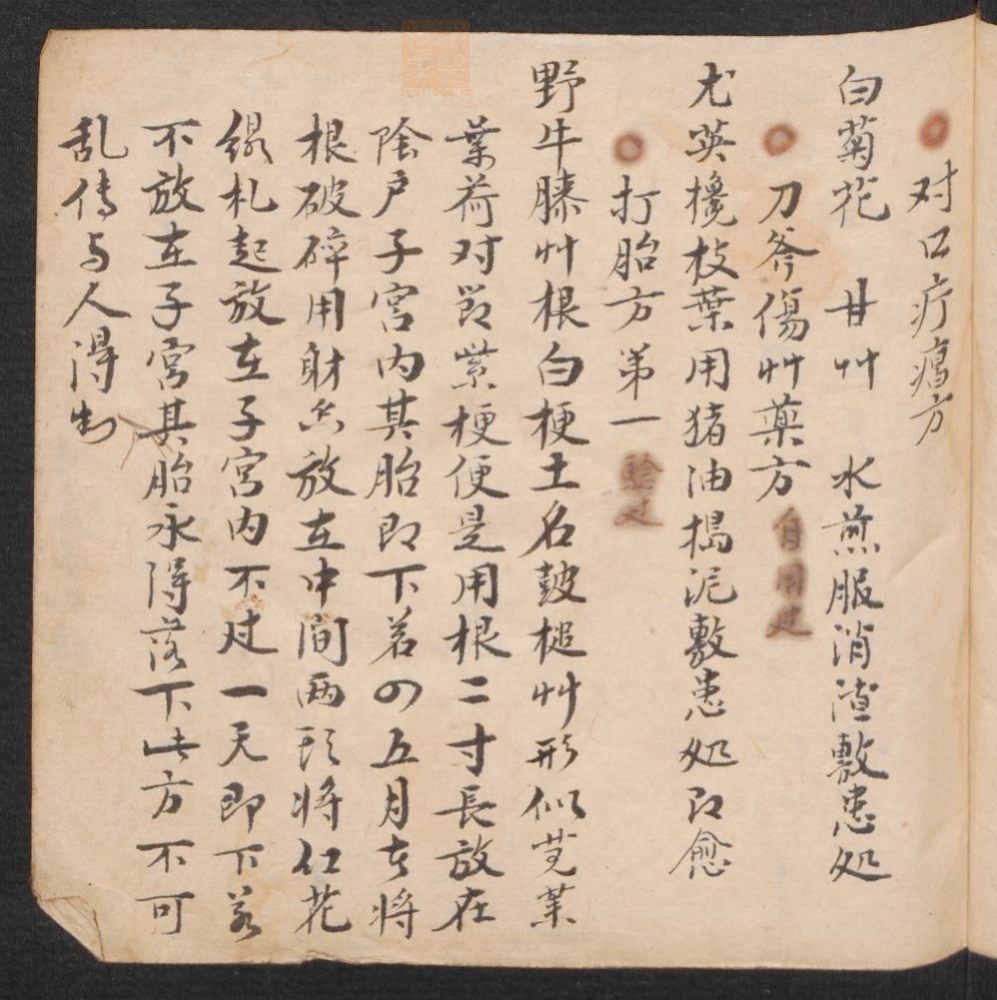 对口疔瘍方
白菊花 甘艸 水煎服消渣敷患处
刀斧傷艸薬方 自用过
尤英㰖枝葉用猪油搗泥敷患处即愈
打胎方第一 驗过
野牛膝艸根白梗土名鼓槌艸形似苋菜
葉荷对節紫梗便是用根二寸長放在
陰户子宮内其胎即下若四五月者将
根破碎用射氽放在中间两头将红花
線札起放在子宮内不过一天即下若
不放在子宮其胎永得落下此方不可
乱传与人得制